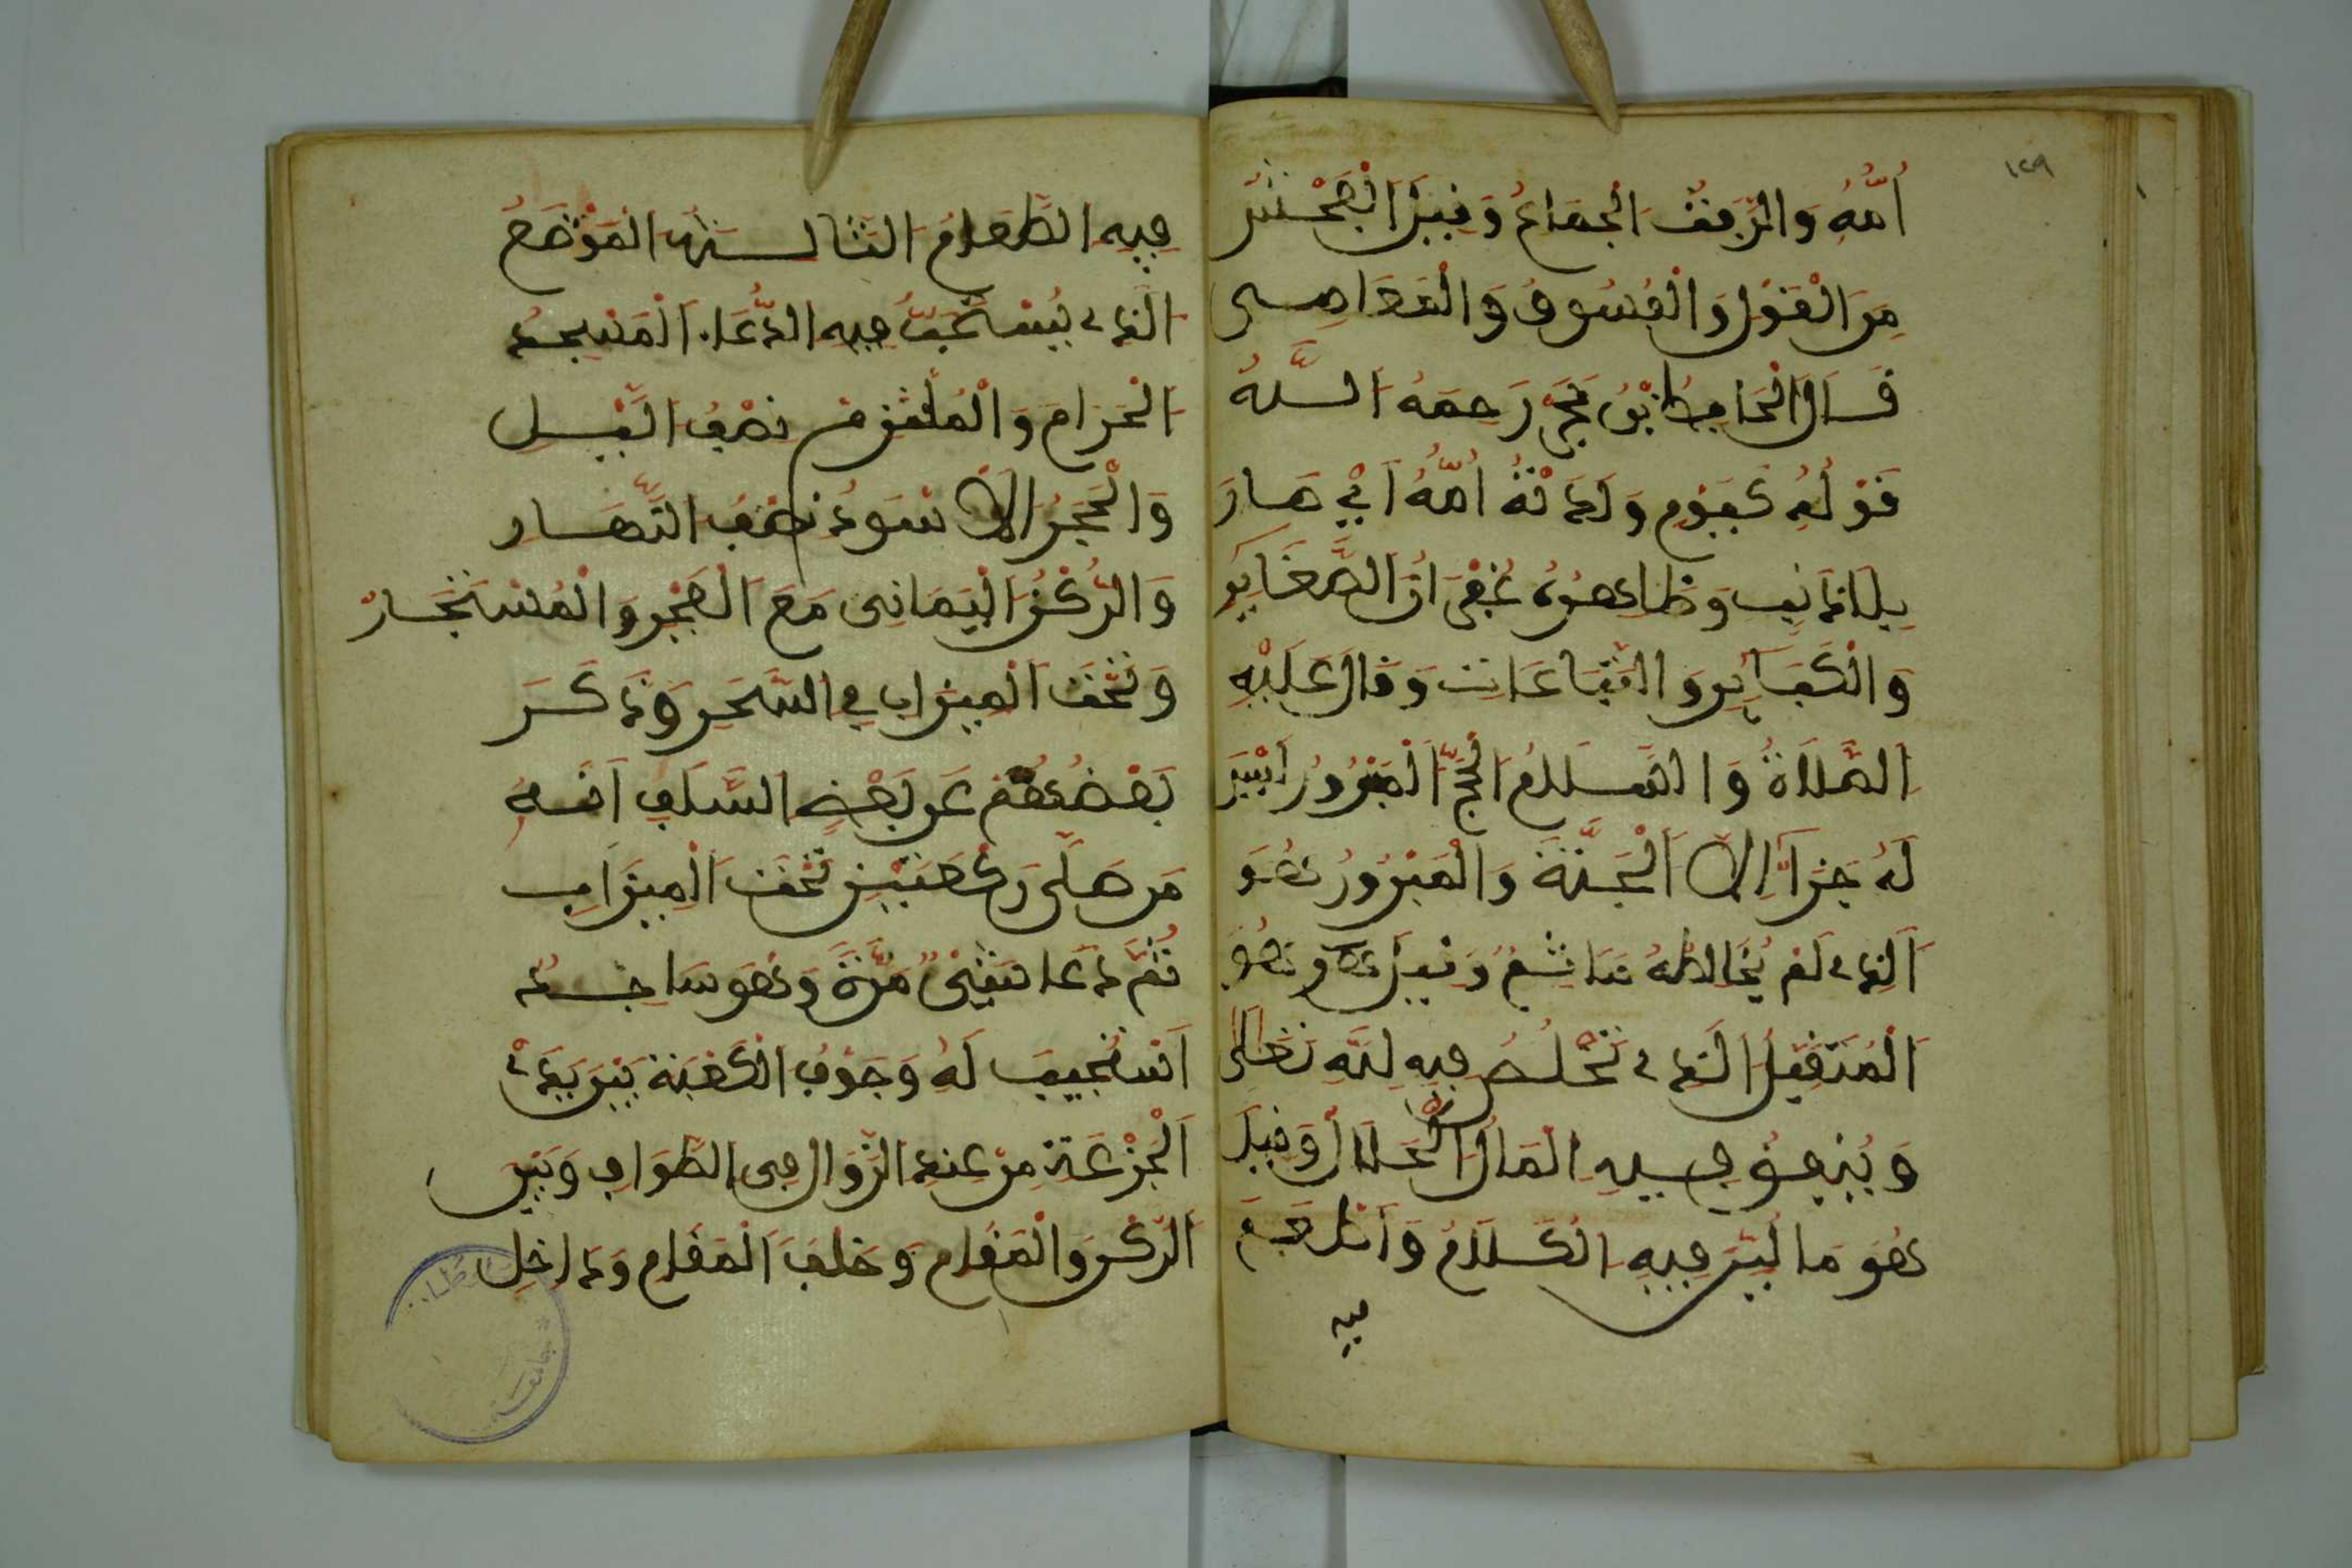 ١٢٩
أُمُّهُ وَالرَّفَثُ الْجِمَاعُ وَقِيلَ الْفُحْشُ
مِنَ الْقَوْلِ وَالْفُسُوقُ وَالْمَعَاصِي
قَالَ الْحَافِظُ ابْنُ حَجَرٍ رَحِمَهُ اللَّهُ
قَوْلُهُ كَيَوْمِ وَلَدَتْهُ أُمُّهُ أَيْ صَارَ
بِلَا ذَنْبٍ وَظَاهِرُهُ غُفْرَانُ الصَّغَايِرِ
وَالْكَبَآئِرِ وَالتَّبَاعَاتِ وَقَالَ عَلَيْهِ
الصَّلَاةُ وَالسَّلَامُ الْحَجُّ الْمَبْرُورُ لَيْسَ
لَهُ جَزَآءٌ إِلَّا الْجَنَّةَ وَالْمَبْرُورُ هُوَ
الَّذِي لَمْ يُخَالِطْهُ مَاثَمٌ وَقِيلَ هُوَ
الْمُتَقَبَّلُ الَّذِي تَخْلُصُ فِيهِ لِلَّهِ تَعَالَى
وَيُنْفِقُ فِيهِ الْمَالَ الْحَلَالَ وَقِيلَ
هُوَ مَا لُيِّنَ فِيهِ الْكَلَامُ وَأُطْعِمَ
فيه
فِيهِ الطَّعَامُ الثَّالِثَةُ الْمَوْضِعُ
الَّذِي يُسْتَحَبُّ فِيهِ الدُّعَاءُ الْمَسْجِدُ
الْحَرَامُ وَالْمُلْتَزَمُ نِصْفَ اللَّيْلِ
وَالْحَجَرُ الْأَسْوَدُ نِصْفَ النَّهَارِ
وَالرُّكْنُ الْيَمَانِي مَعَ الْفَجْرِ وَالْمُسْتَجَارُ
وَتَحْتَ الْمِيزَابِ فِي السَّحَرِ وَذَكَرَ
بَعْضُهُمْ عَنْ بَعْضِ السَّلَفِ أَنَّهُ
مَنْ صَلَّى رَكْعَتَيْنِ تَحْتَ الْمِيزَابِ
ثُمَّ دَعَا مَرَّةً وَهُوَ سَاجِدٌ
اسْتُجِيبَ لَهُ وَجَوْفُ الْكَعْبَةِ بَيْنَ يَدَيْ
الْجَزْعَةِ مِنْ عِنْدِ الزَّوَالِ فِي الطَّوَافِ وَبَيْنَ
الرُّكْنِ وَالْمَقَامِ وَخَلْفَ الْمَقَامِ وَدَاخِلَ
جامعة